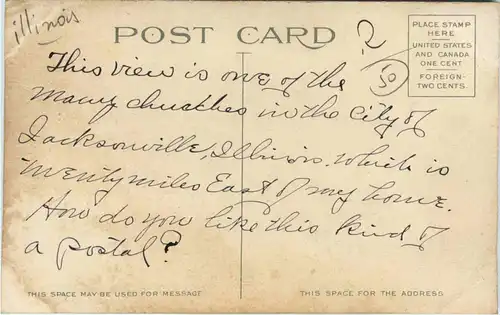 illinois
POST CARD
2
50
PLACE STAMP
HERE
UNITED STATES
AND CANADA
ONE CENT
FOREIGN-
TWO CENTS
This view is one of the
many churches in the city of
Jacksonville, Illinois. which is
twenty miles East of my home.
How do you like this kind of
a postal?
THIS SPACE MAY BE USED FOR MESSAGE
THIS SPACE FOR THE ADDRESS